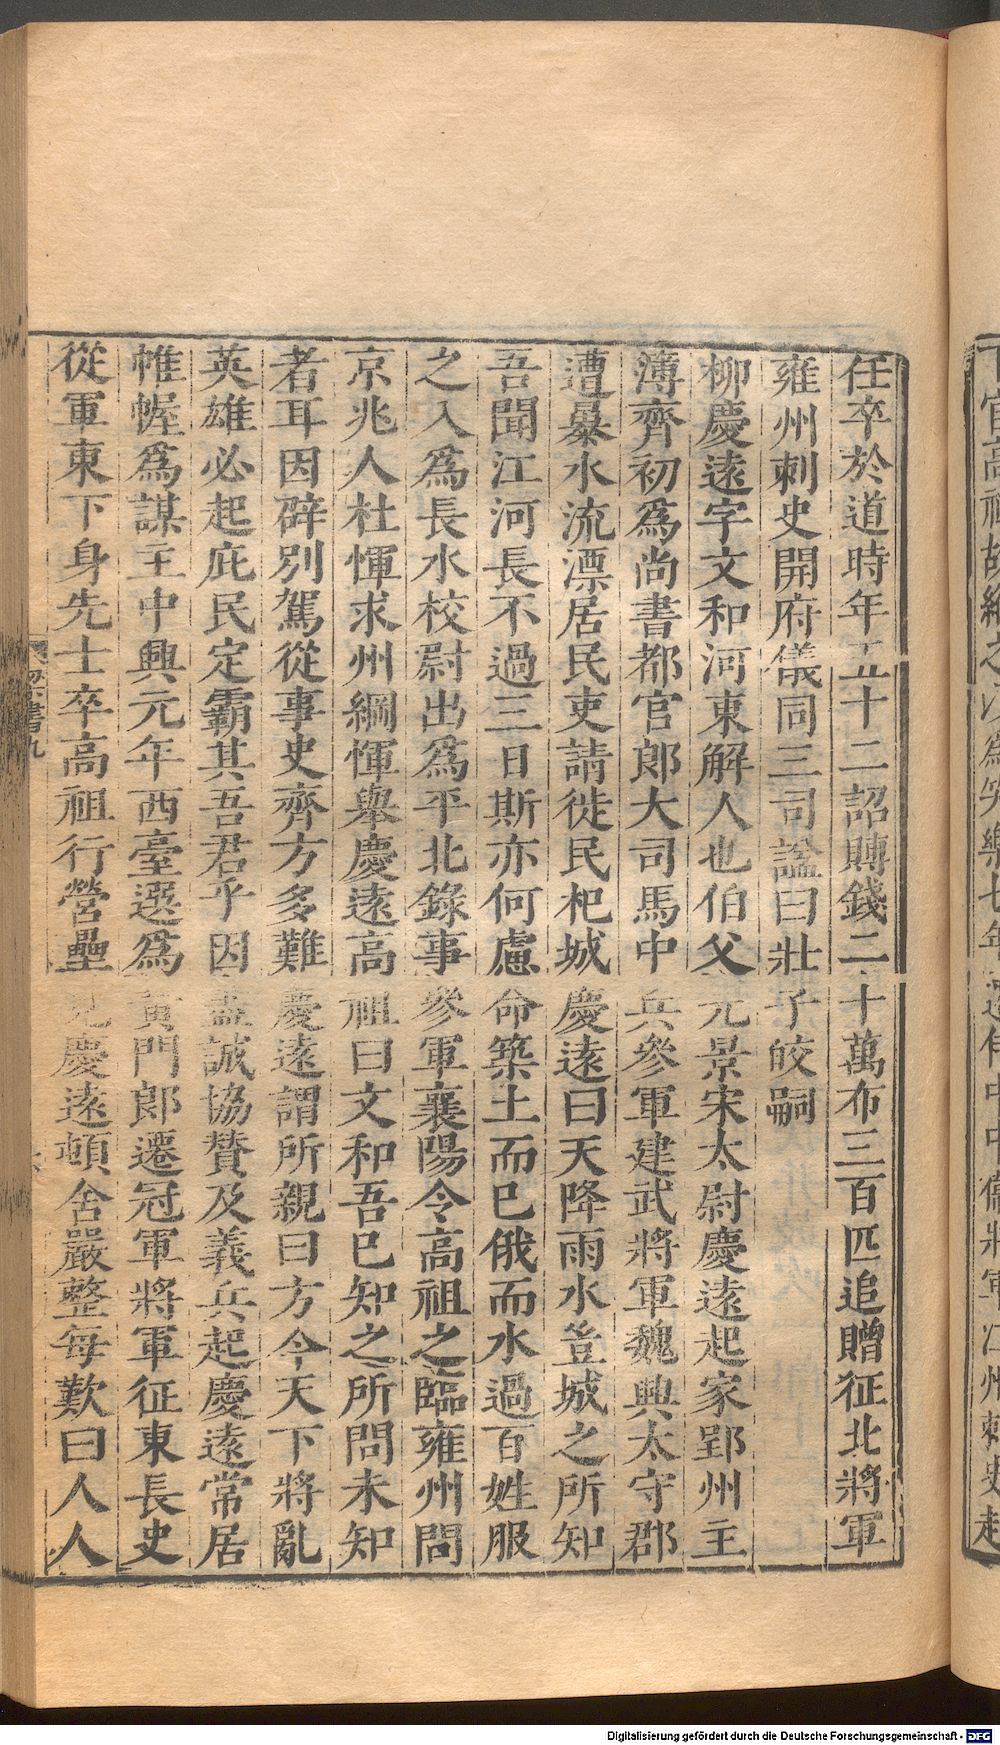 任卒於道時年五十二詔賻錢二十萬布三百匹追贈征北將軍
雍州刺史開府儀同三司諡曰壯子皎嗣
柳慶遠字文和河東解人也伯父元景宋太尉慶遠起家郢州主
薄齊初爲尚書都官郎大司馬中兵參軍建武將軍魏興太守郡
遭暴水流漂居民吏請徙民杞城慶遠曰天降雨水豈城之所知
吾聞江河長不過三日斯亦何慮命築土而已俄而水過百姓服
之入爲長水校尉出爲平北錄事參軍襄陽令高祖之臨雍州問
京兆人杜惲求州綱惲舉慶遠高祖曰文和吾已知之所問未知
者耳因辟別駕從事史齊方多難慶遠謂所親曰方今天下將亂
英雄必起庇民定霸其吾君乎因盡誠協贊及義兵起慶遠常居
帷幄爲謀主中興元年西臺選爲黃門郎遷冠軍將軍征東長史
從軍東下身先士卒高祖行營壘見慶遠頓舍嚴整每歎曰人人
Digitalisierung gefördert durch die Deutsche Forschungsgemeinschaft - DFG